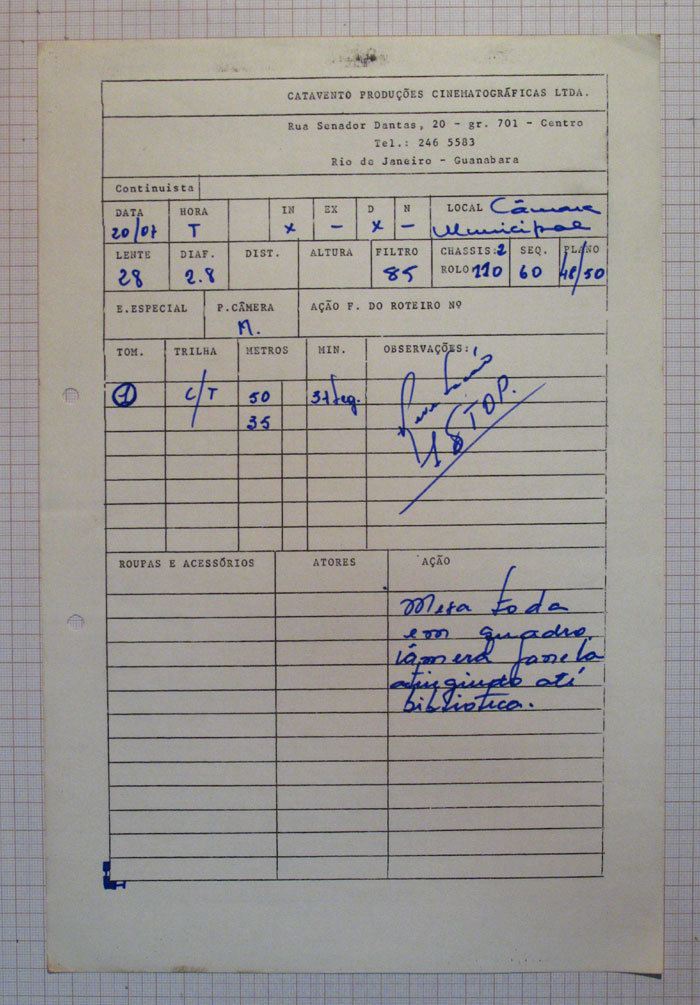 CATAVENTO PRODUÇÕES CINEMATOGRÁFICAS LTDA.
Rua Senador Dantas, 20 - gr. 701 - Centro
Tel.: 246 5583
Rio de Janeiro - Guanabara
Continuista
DATA HORA IN EX D N LOCAL Câmara
20/07 T x - x - Municipal
LENTE DIAF. DIST. ALTURA FILTRO CHASSIS: 2 SEQ. PLANO
28 2.8 85 ROLO 110 60 48/50
E.ESPECIAL P.CÂMERA AÇÃO F. DO ROTEIRO Nº
M.
TOM. TRILHA METROS MIN. OBSERVAÇÕES:
1 C/T 50 31 seg.
35
STOP.
ROUPAS E ACESSÓRIOS ATORES AÇÃO
Mesa toda
em quadro.
Câmera janela
atingindo até
biblioteca.